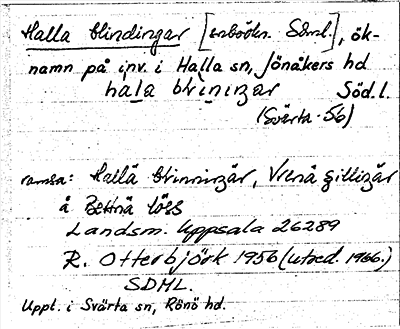 Halla blindingar [inbödn. Sdml.], ök-
namn på inv. i Halla sn, Jönåkers hd
hala bliniŋar Söd.l.
(Svärta - 56)
ramsa: Hallä blinniŋär, Vrenä gilliŋär
å Bettnä löss
Landsm. Uppsala 26289
R. Otterbjörk 1956 (utred. 1966.)
SDML.
Uppt. i Svärta sn, Rönö hd.